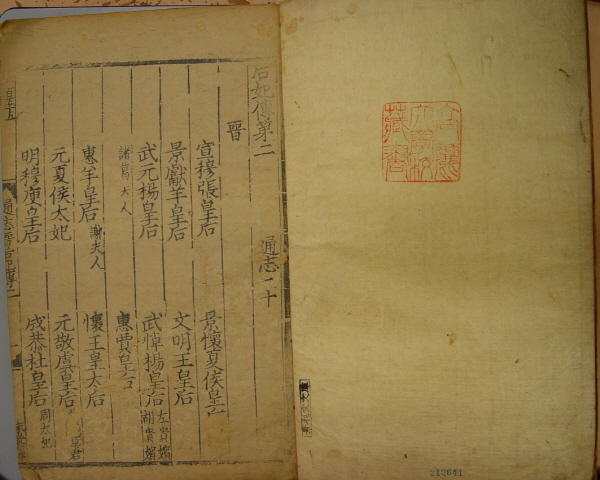 后妃傳第二 通志二十
晉
宣穆張皇后 景懷夏侯皇后
景獻羊皇后 文明王皇后
武元楊皇后 武悼楊皇后 左貴嬪 胡貴嬪
諸葛夫人 惠賈皇后
惠羊皇后 謝夫人 懷王皇太后
元夏侯太妃 元敬虞皇后
明穆庾皇后 成恭杜皇后 周太妃
藏書
212641